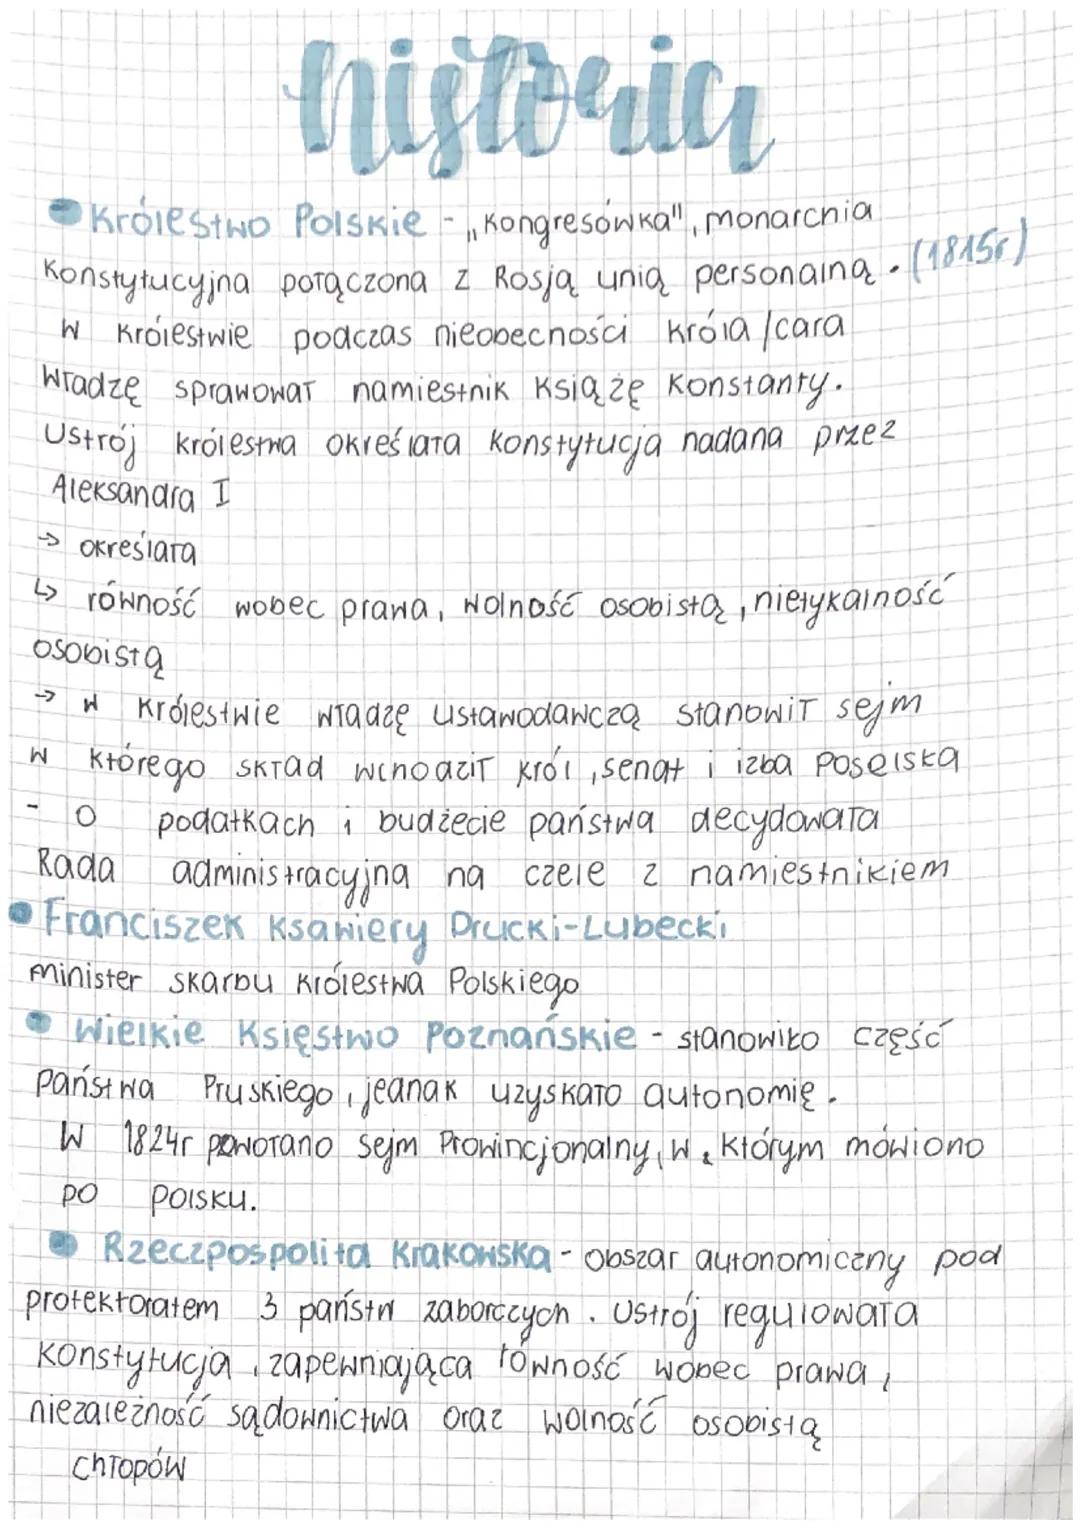 historia
Królestwo Polskie - „Kongresówka", monarchia
konstytucyjna połączona z Rosją unią personalną. (1815r)
W Królestwie podczas nieobecności króla/cara
władzę sprawował namiestnik Książę Konstanty.
Ustrój królestwa określała konstytucja nadana przez
Aleksandra I
→ określała
↳ równość wobec prawa, wolność osobistą, nietykalność
osobistą
→ w Królestwie władzę ustawodawczą stanowił sejm
w którego skład wchodził król, senat i izba poselska
- o podatkach i budżecie państwa decydowała
Rada administracyjna na czele z namiestnikiem
Franciszek Ksawiery Drucki-Lubecki
minister skarbu Królestwa Polskiego
Wielkie Księstwo Poznańskie - stanowiło część
państwa Pruskiego, jednak uzyskało autonomię.
W 1824r powołano Sejm Prowincjonalny, w którym mówiono
po polsku.
Rzeczpospolita Krakowska - obszar autonomiczny pod
protektoratem 3 państw zaborczych. Ustrój regulowała
konstytucja, zapewniająca równość wobec prawa,
niezależność sądownictwa oraz wolność osobistą
chłopów